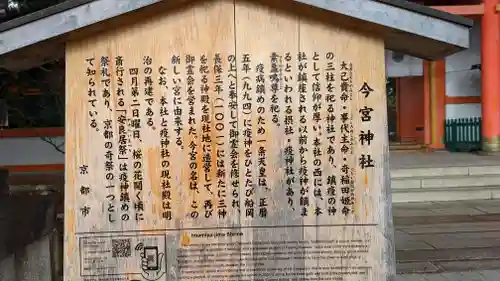 今宮神社
大己貴命・事代主命・奇稲田姫命
の三柱を祀る神社であり、鎮疫の神
として信仰が厚い。本社の西には、本
社が鎮座される以前から疫神が鎮ま
るといわれる摂社・疫神社があり、
素盞嗚尊を祀る。
疫病鎮めのため一条天皇は、正暦
五年(九九四)に疫神をひとたび船岡
の上へと奉安して御霊会を修せられ、
長保三年(一〇〇一)には新たに三神
を祀る神殿を現社地に造営して、再び
御霊会を営まれた。今宮の名は、この
新しい宮に由来する。
なお、本社と疫神社の現社殿は明
治の再建である。
四月第二日曜日、桜の花開く頃に
斎行される「安良居祭」は疫神鎮めの
祭礼であり、京都の奇祭の一つとし
て知られている。
京都市
Imamiya-jinja Shrine